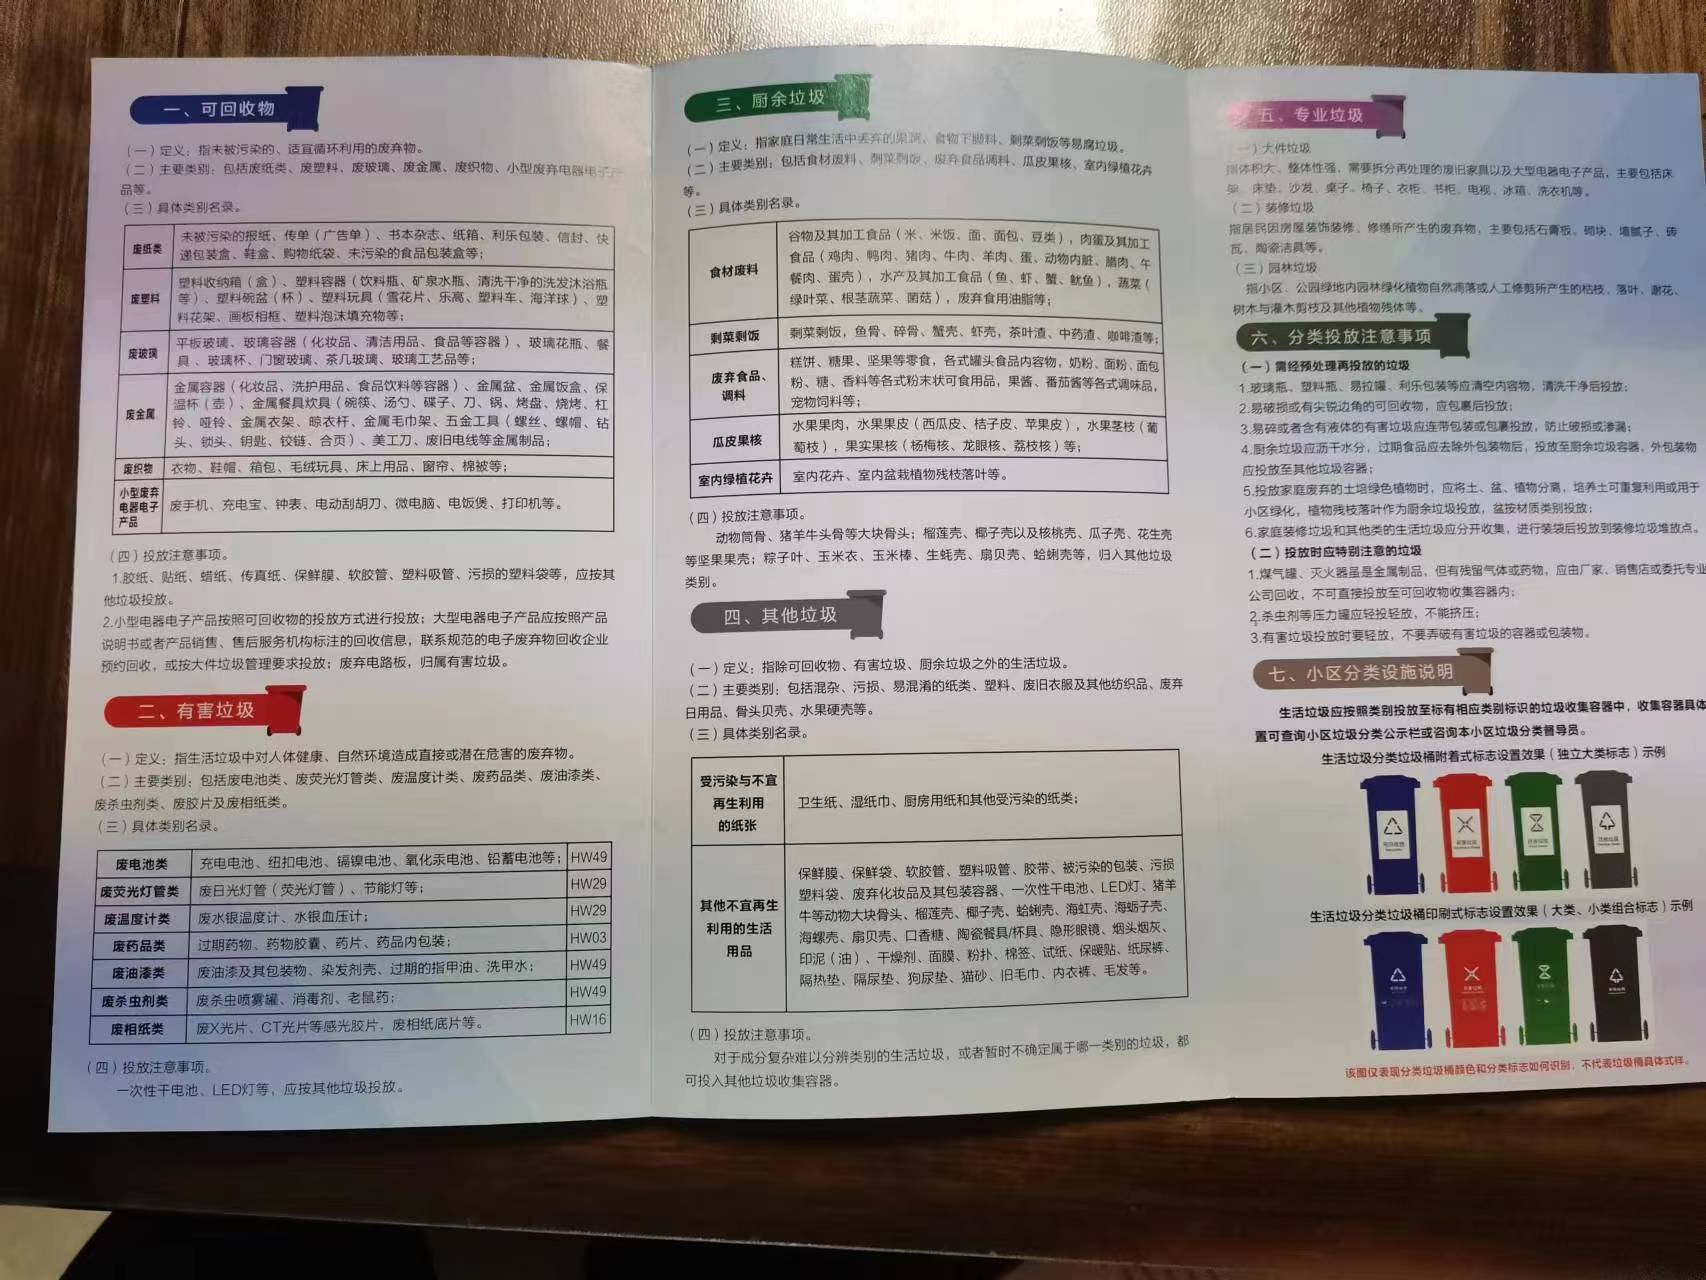 一、可回收物
（一）定义：指未被污染的、适宜循环利用的废弃物。
（二）主要类别：包括废纸类、废塑料、废玻璃、废金属、废织物、小型废弃电器电子产
品等。
（三）具体类别名录。
废纸类
未被污染的报纸、传单（广告单）、书本杂志、纸箱、利乐包装、信封、快
递包装盒、鞋盒、购物纸袋、未污染的食品包装盒等；
废塑料
塑料收纳箱（盒）、塑料容器（饮料瓶、矿泉水瓶、清洗干净的洗发沐浴瓶
等）、塑料碗盆（杯）、塑料玩具（雪花片、乐高、塑料车、海洋球）、塑
料花架、画板相框、塑料泡沫填充物等；
废玻璃
平板玻璃、玻璃容器（化妆品、清洁用品、食品等容器）、玻璃花瓶、餐
具、玻璃杯、门窗玻璃、茶几玻璃、玻璃工艺品等；
废金属
金属容器（化妆品、洗护用品、食品饮料等容器）、金属盆、金属饭盒、保
温杯（壶）、金属餐具炊具（碗筷、汤勺、碟子、刀、锅、烤盘、烧烤、杠
铃、哑铃、金属衣架、晾衣杆、金属毛巾架、五金工具（螺丝、螺帽、钻
头、锁头、钥匙、铰链、合页）、美工刀、废旧电线等金属制品；
废织物
衣物、鞋帽、箱包、毛绒玩具、床上用品、窗帘、棉被等；
小型废弃
电器电子
产品
废手机、充电宝、钟表、电动刮胡刀、微电脑、电饭煲、打印机等。
（四）投放注意事项。
1.胶纸、贴纸、蜡纸、传真纸、保鲜膜、软胶管、塑料吸管、污损的塑料袋等，应按其
他垃圾投放。
2.小型电器电子产品按照可回收物的投放方式进行投放；大型电器电子产品应按照产品
说明书或者产品销售、售后服务机构标注的回收信息，联系规范的电子废弃物回收企业
预约回收，或按大件垃圾管理要求投放；废弃电路板，归属有害垃圾。
二、有害垃圾
（一）定义：指生活垃圾中对人体健康、自然环境造成直接或潜在危害的废弃物。
（二）主要类别：包括废电池类、废荧光灯管类、废温度计类、废药品类、废油漆类、
废杀虫剂类、废胶片及废相纸类。
（三）具体类别名录。
废电池类 充电电池、纽扣电池、镉镍电池、氧化汞电池、铅蓄电池等； HW49
废荧光灯管类 废日光灯管（荧光灯管）、节能灯等； HW29
废温度计类 废水银温度计、水银血压计； HW29
废药品类 过期药物、药物胶囊、药片、药品内包装； HW03
废油漆类 废油漆及其包装物、染发剂壳、过期的指甲油、洗甲水； HW49
废杀虫剂类 废杀虫喷雾罐、消毒剂、老鼠药； HW49
废相纸类 废X光片、CT光片等感光胶片，废相纸底片等。 HW16
（四）投放注意事项。
一次性干电池、LED灯等，应按其他垃圾投放。
三、厨余垃圾
（一）定义：指家庭日常生活中丢弃的果蔬、食物下脚料、剩菜剩饭等易腐垃圾。
（二）主要类别：包括食材废料、剩菜剩饭、废弃食品调料、瓜皮果核、室内绿植花卉
等。
（三）具体类别名录。
食材废料
谷物及其加工食品（米、米饭、面、面包、豆类），肉蛋及其加工
食品（鸡肉、鸭肉、猪肉、牛肉、羊肉、蛋、动物内脏、腊肉、午
餐肉、蛋壳），水产及其加工食品（鱼、虾、蟹、鱿鱼），蔬菜（
绿叶菜、根茎蔬菜、菌菇），废弃食用油脂等；
剩菜剩饭
剩菜剩饭，鱼骨、碎骨、蟹壳、虾壳，茶叶渣、中药渣、咖啡渣等；
废弃食品、
调料
糕饼、糖果、坚果等零食，各式罐头食品内容物，奶粉、面粉、面包
粉、糖、香料等各式粉末状可食用品，果酱、番茄酱等各式调味品，
宠物饲料等；
瓜皮果核
水果果肉，水果果皮（西瓜皮、桔子皮、苹果皮），水果茎枝（葡
萄枝），果实果核（杨梅核、龙眼核、荔枝核）等；
室内绿植花卉
室内花卉、室内盆栽植物残枝落叶等。
（四）投放注意事项。
动物筒骨、猪羊牛头骨等大块骨头；榴莲壳、椰子壳以及核桃壳、瓜子壳、花生壳
等坚果果壳；粽子叶、玉米衣、玉米棒、生蚝壳、扇贝壳、蛤蜊壳等，归入其他垃圾
类别。
四、其他垃圾
（一）定义：指除可回收物、有害垃圾、厨余垃圾之外的生活垃圾。
（二）主要类别：包括混杂、污损、易混淆的纸类、塑料、废旧衣服及其他纺织品、废弃
日用品、骨头贝壳、水果硬壳等。
（三）具体类别名录。
受污染与不宜
再生利用
的纸张
卫生纸、湿纸巾、厨房用纸和其他受污染的纸类；
其他不宜再生
利用的生活
用品
保鲜膜、保鲜袋、软胶管、塑料吸管、胶带、被污染的包装、污损
塑料袋、废弃化妆品及其包装容器、一次性干电池、LED灯、猪羊
牛等动物大块骨头、榴莲壳、椰子壳、蛤蜊壳、海虹壳、海蛎子壳、
海螺壳、扇贝壳、口香糖、陶瓷餐具/杯具、隐形眼镜、烟头烟灰、
印泥（油）、干燥剂、面膜、粉扑、棉签、试纸、保暖贴、纸尿裤、
隔热垫、隔尿垫、狗尿垫、猫砂、旧毛巾、内衣裤、毛发等。
（四）投放注意事项。
对于成分复杂难以分辨类别的生活垃圾，或者暂时不确定属于哪一类别的垃圾，都
可投入其他垃圾收集容器。
五、专业垃圾
（一）大件垃圾
指体积大、整体性强，需要拆分再处理的废旧家具以及大型电器电子产品，主要包括床
架、床垫、沙发、桌子、椅子、衣柜、书柜、电视、冰箱、洗衣机等。
（二）装修垃圾
指居民因房屋装饰装修、修缮所产生的废弃物，主要包括石膏板、砌块、墙腻子、砖
瓦、陶瓷洁具等。
（三）园林垃圾
指小区、公园绿地内园林绿化植物自然凋落或人工修剪所产生的枯枝、落叶、谢花、
树木与灌木剪枝及其他植物残体等。
六、分类投放注意事项
（一）需经预处理再投放的垃圾
1.玻璃瓶、塑料瓶、易拉罐、利乐包装等应清空内容物，清洗干净后投放；
2.易破损或有尖锐边角的可回收物，应包裹后投放；
3.易碎或者含有液体的有害垃圾应连带包装或包裹投放，防止破损或渗漏；
4.厨余垃圾应沥干水分，过期食品应去除外包装物后，投放至厨余垃圾容器，外包装物
应投放至其他垃圾容器；
5.投放家庭废弃的土培绿色植物时，应将土、盆、植物分离，培养土可重复利用或用于
小区绿化，植物残枝落叶作为厨余垃圾投放，盆按材质类别投放；
6.家庭装修垃圾和其他类的生活垃圾应分开收集，进行装袋后投放到装修垃圾堆放点。
（二）投放时应特别注意的垃圾
1.煤气罐、灭火器虽是金属制品，但有残留气体或药物，应由厂家、销售店或委托专业
公司回收，不可直接投放至可回收物收集容器内；
2.杀虫剂等压力罐应轻投轻放，不能挤压；
3.有害垃圾投放时要轻放，不要弄破有害垃圾的容器或包装物。
七、小区分类设施说明
生活垃圾应按照类别投放至标有相应类别标识的垃圾收集容器中，收集容器具体
置可查询小区垃圾分类公示栏或咨询本小区垃圾分类督导员。
生活垃圾分类垃圾桶附着式标志设置效果（独立大类标志）示例
生活垃圾分类垃圾桶印刷式标志设置效果（大类、小类组合标志）示例
该图仅表现分类垃圾桶颜色和分类标志如何识别，不代表垃圾桶具体式样。